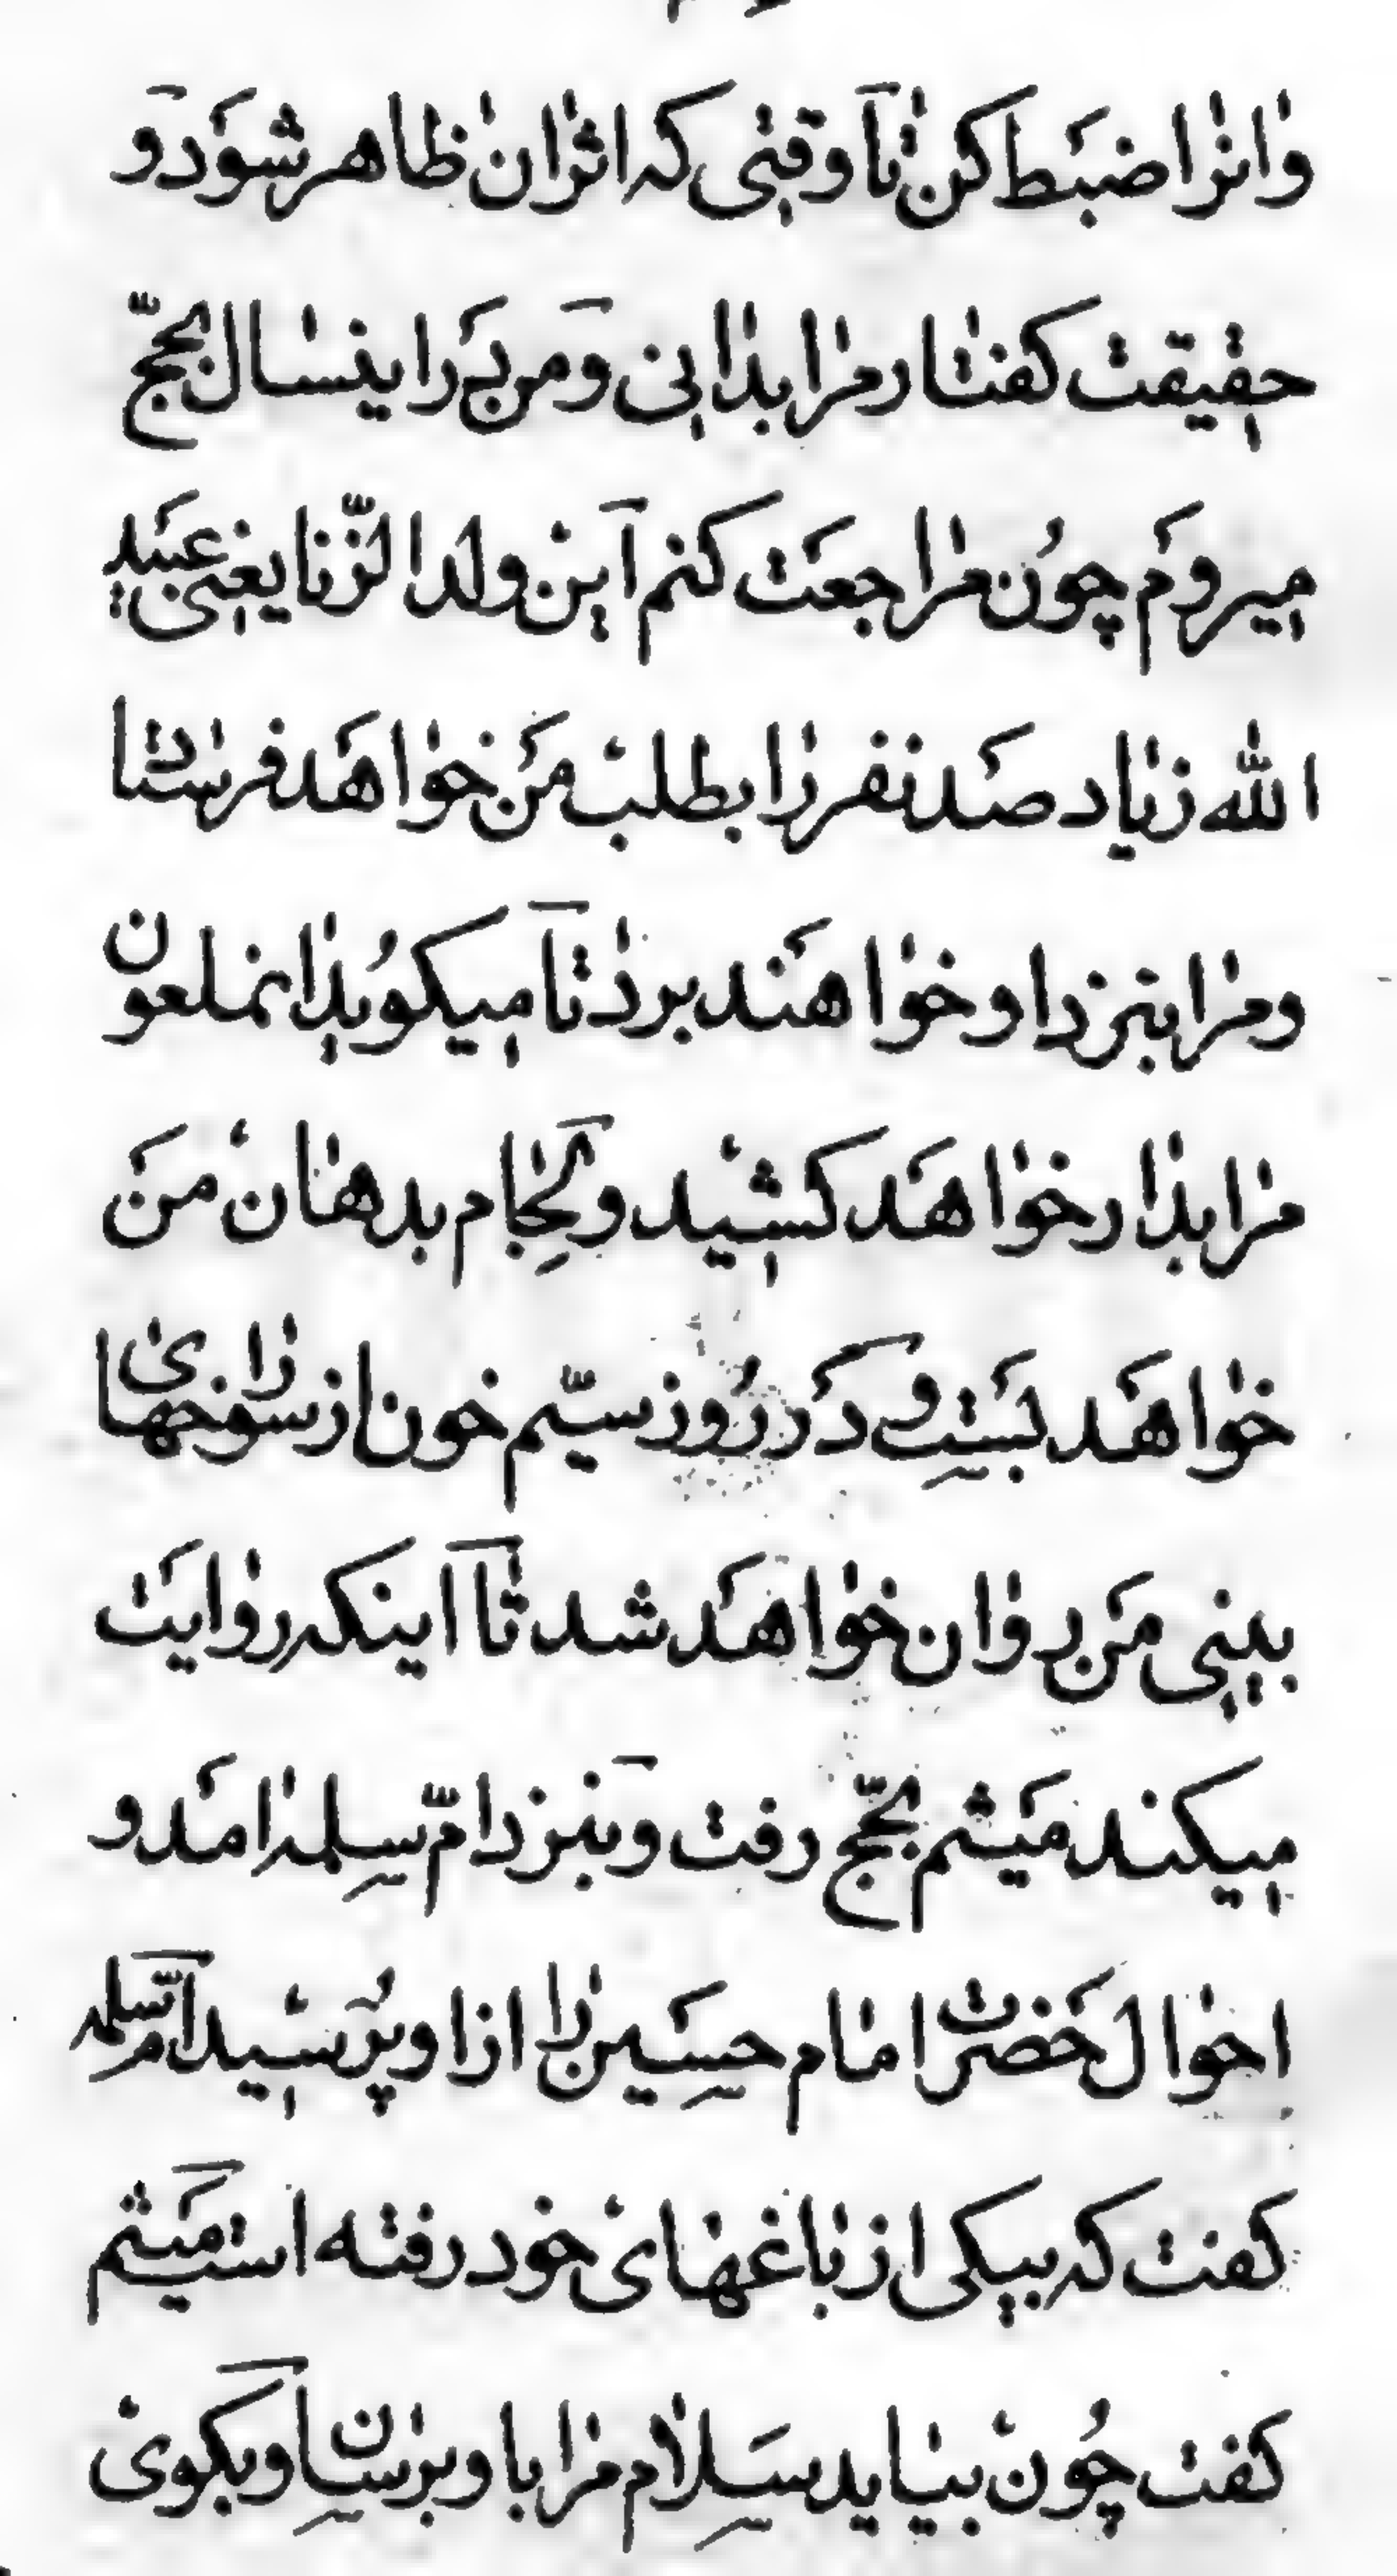 وانرا ضبط کن تا وقتی که اثر ان ظاهر شود و
حقیقت کفتار مرا بدانی و من بر اینسال بحجّ
میروم چون مراجعت کنم این ولد الزّنا یعنی عبید
الله زیاد صد نفر را بطلب من خواهد فرستاد تا
و مرا بنزد او خواهند برد تا میکوید انملعون
مرا بدار خواهد کشید و لجام بدهان من
خواهد بست و در روز سیّم خون از سوراخهای
بینی من روان خواهد شد تا اینکه روایت
میکنند میثم بحجّ رفت و بنزد امّ سلمه امد و
احوال حضرت امام حسین را از او پرسید امّ سلمه
کفت که بیکی از باغهای خود رفته است میثم
کفت چون بیاید سلام مرا باو برسان و بکوی